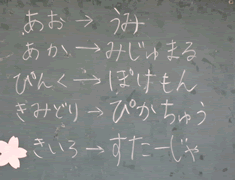 あお→うみ
あか→みじゅまる
ぴんく→ぽけもん
きみどり→ぴかちゅう
きいろ→すたーじゃ